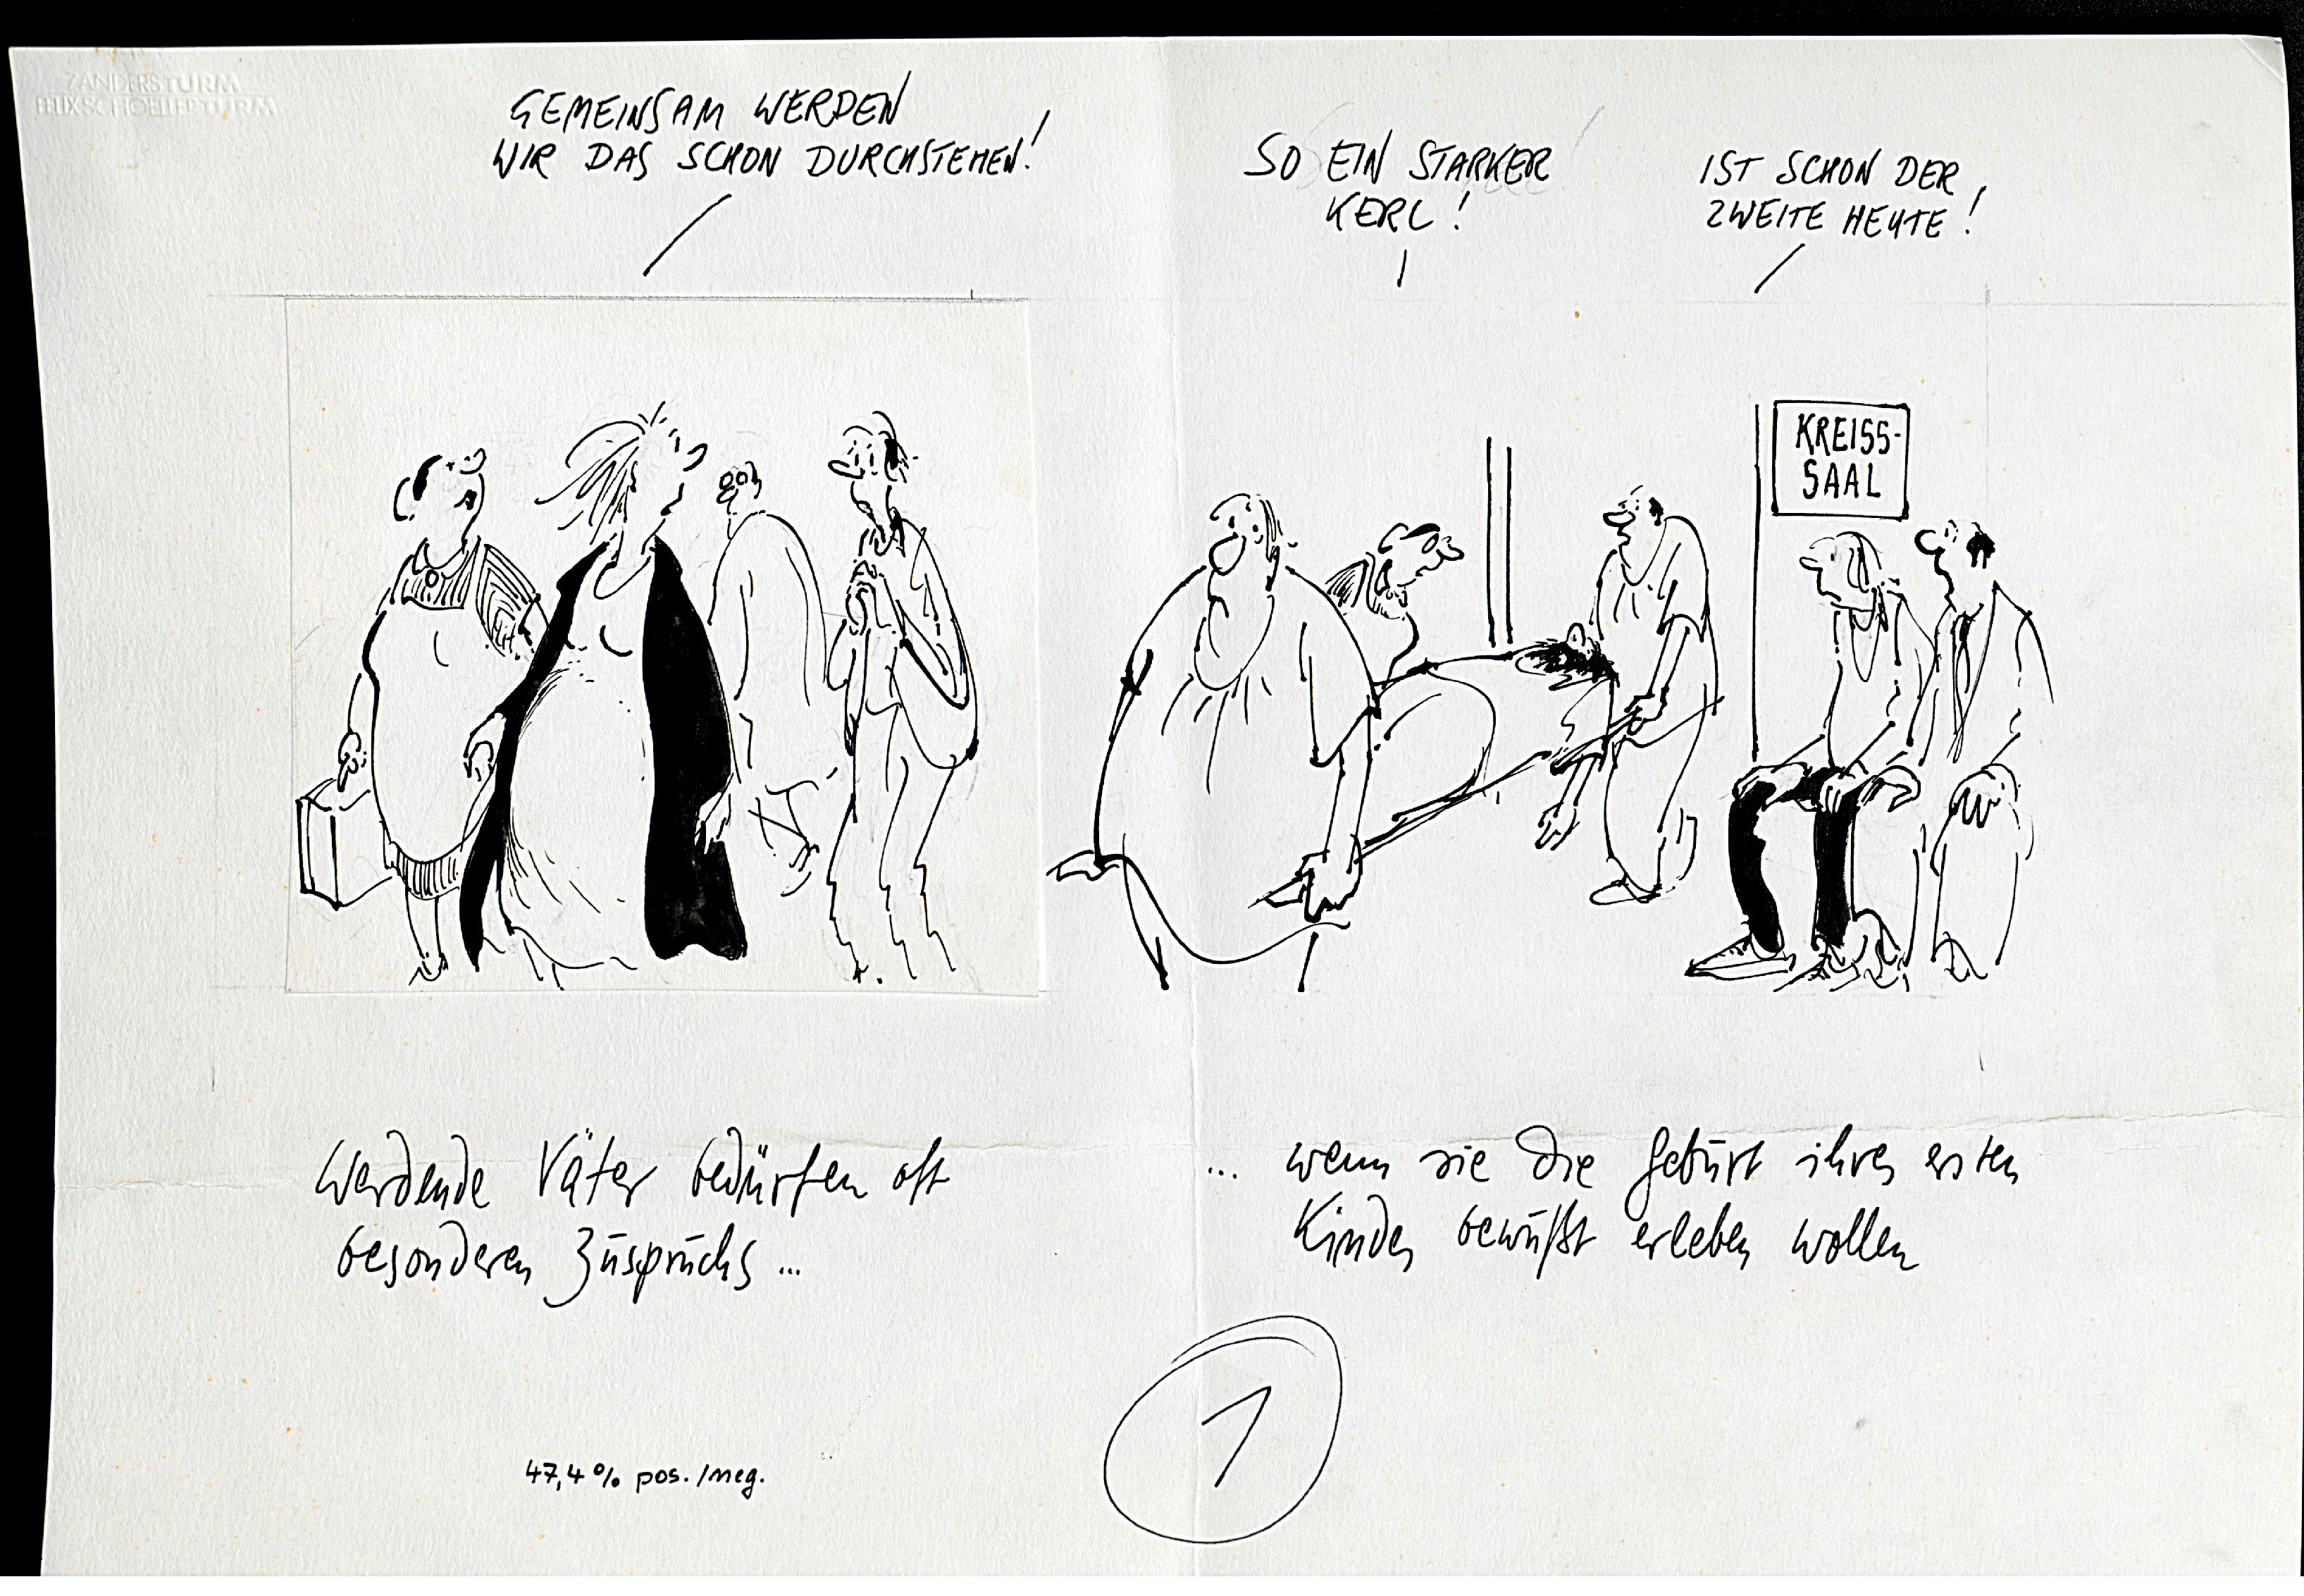 ZANDERSTURM
FELIX SCHOELLER TURM
GEMEINSAM WERDEN
WIR DAS SCHON DURCHSTEHEN!
SO EIN STARKER
KERL!
IST SCHON DER
ZWEITE HEUTE!
KREISS-
SAAL
Werdende Väter bedürfen oft
besonderen Zuspruchs...
... wenn sie die Geburt ihres ersten
Kindes bewußt erleben wollen
1
47,4% pos./neg.